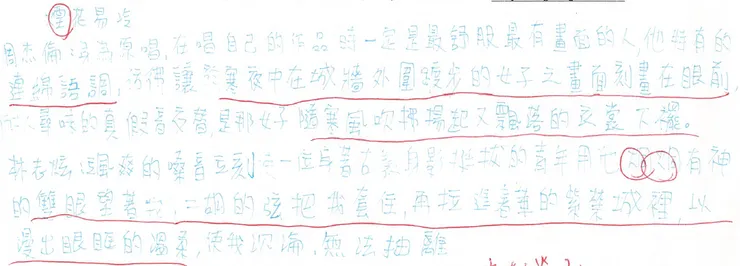 雪花易冷
周杰倫:身為原唱,在唱自己的作品時一定是最舒服最有畫面的人,他特有的
連綿語調,彷彿讓於寒夜中在城牆外圍踱步的女子之畫面刻畫在眼前,
尋味的真假音交替,是那女子隨寒風吹拂揚起又飄落的衣裳下襬。
林志炫:的嗓音立刻一位穿著古裝身影挺拔的青年用他有神
的雙眼望著你,二胡的弦把我套住,再拉進奢華的紫禁城裡,以
漫出眼眶的溫柔,使我沉淪,無法抽離